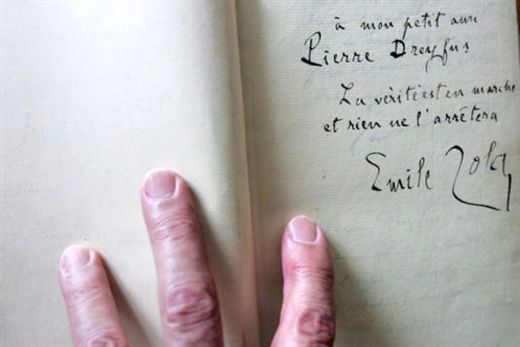 à mon petit ami
Pierre Dreyfus
La vérité est en marche
et rien ne l'arrêtera
Emile Zola